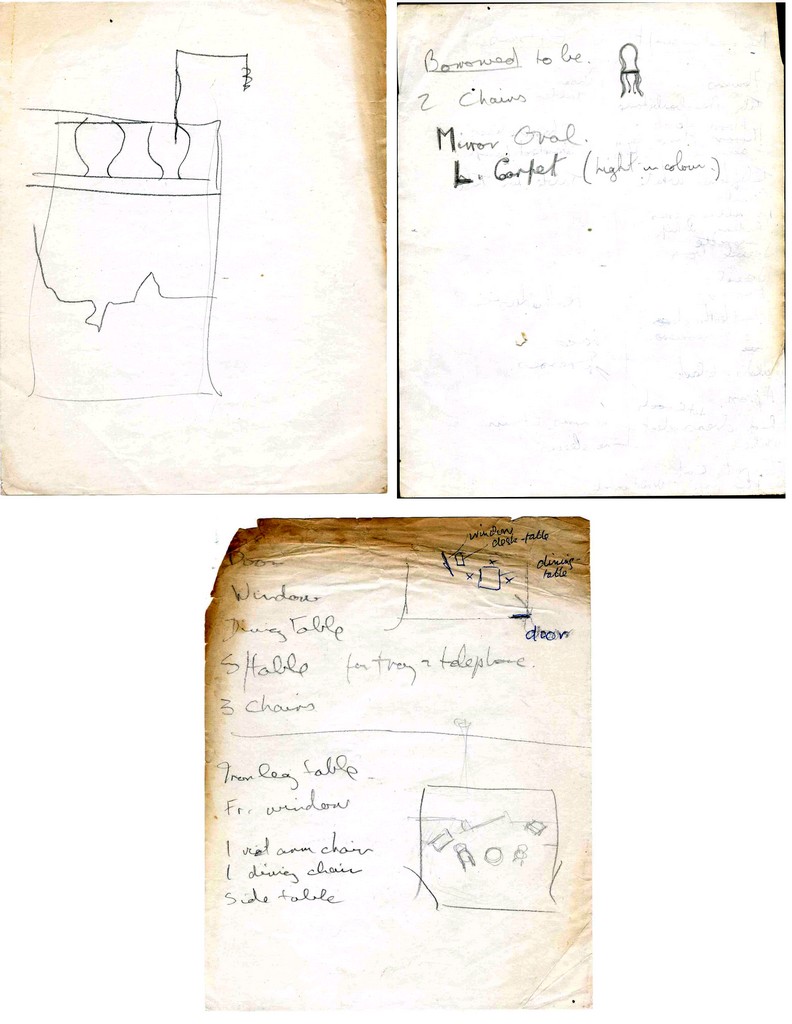 Borrowed to be.
2 Chairs
Mirror Oval.
L. Carpet (Light in colour.)
window
desk-table
dining-table
door
Door
Window
Dining Table
S/table for tray & telephone.
3 Chairs
Iron leg table
Fr. window
1 arm chair
1 dining chair
Side table